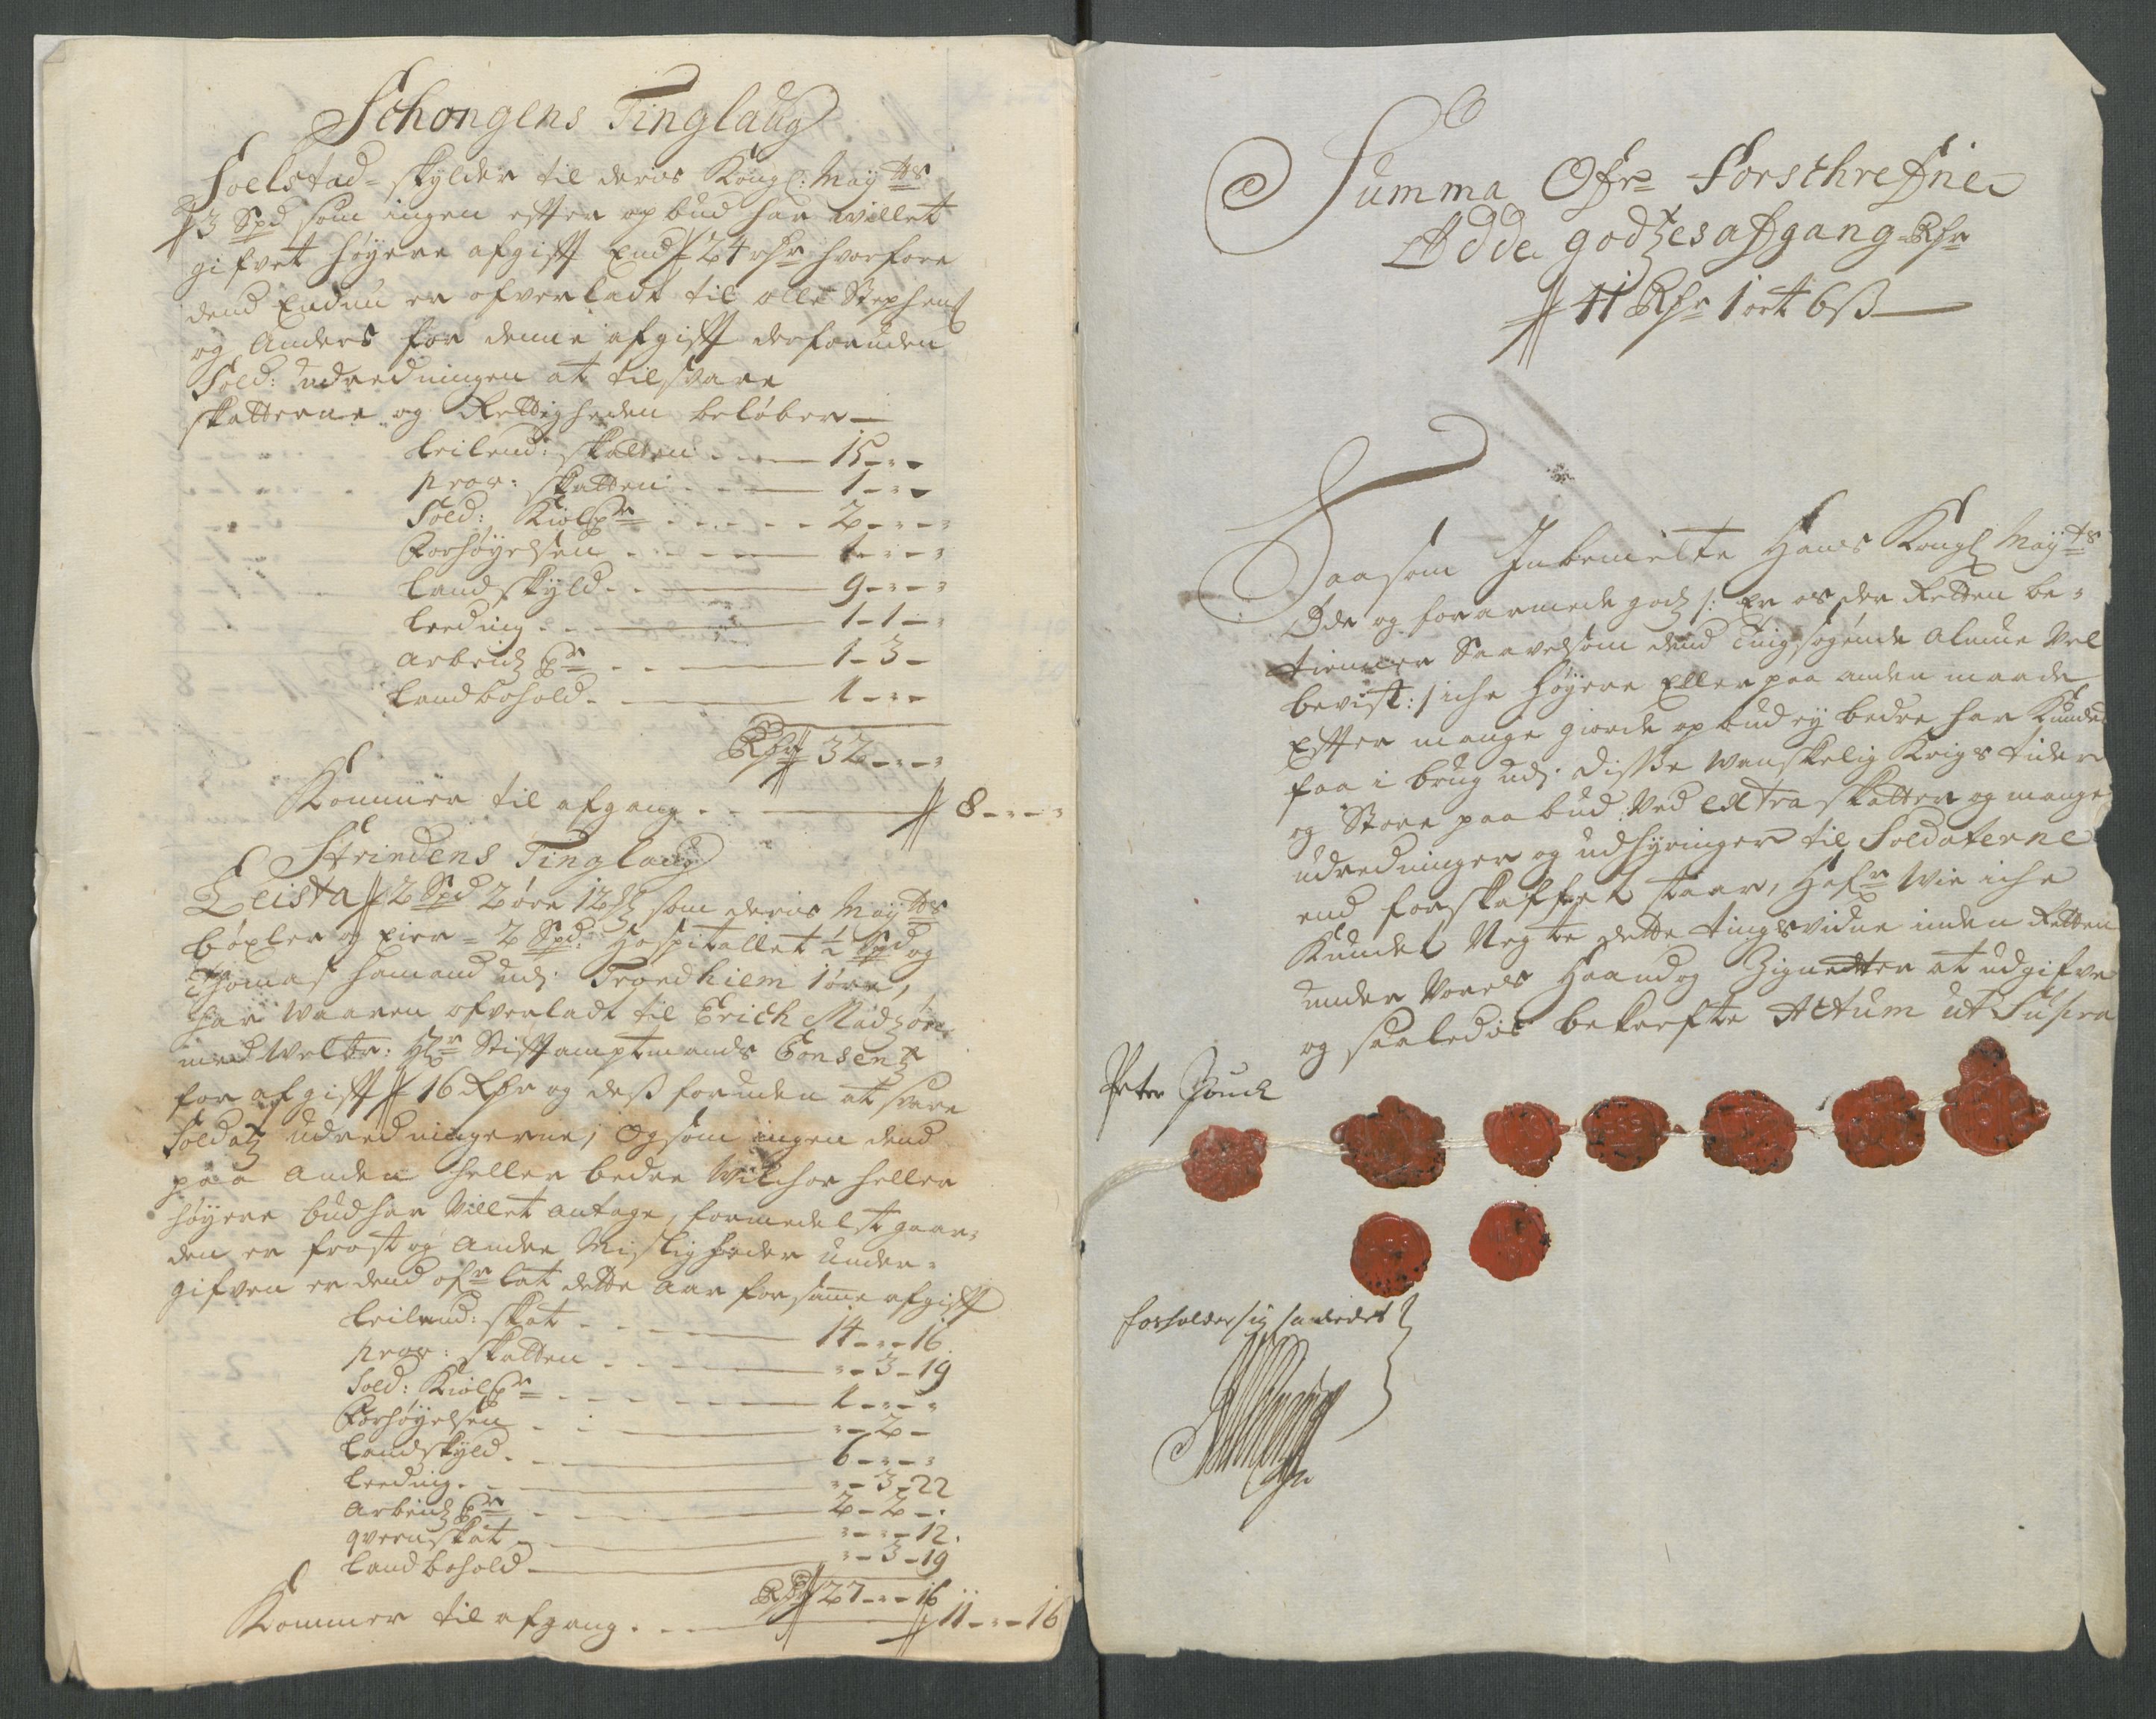 Schongens Tinglaug
Soelstad- skylder til deris Kongl: May:ts
3 Spd som ingen efter opbud har willet
gifvet høyere afgift End 24 rdr hvorfore
dend Endnu er ofverladt til Olle Stephens
og Anders for denne afgift derforuden
Sold: udredningen at tilsvare
skatterne og Rettigheden beløber —
Leilend: skatten - - - 15 - - -
prov: skatten - - - 1 - - -
Sold: Kiolsp: - - - 2 - - -
Forhøyelsen - - - 1 - - -
Landskyld - - - 9 - - -
Leeding - - - 1 - 1 -
Arbeidz P: - - - 1 - 3 -
Landbohold - - - 1 - - -
Rdr 32 - - -
Kommer til afgang - - - 8 - - -
Strindens Tinglaug
Leista 2 Spd 2 øre 12 som deris May:ts
bøxler og Eier = 2 Spd: Hospitallet ½ Spd og
Thomas Hamand udj Trondhiem 1 øre,
har waaren ofverladt til Erich Madzøn
med Welb: Hr Stiftamptmands Consentz
for afgift 16 Rdr og dess foruden at svare
Soldatz udredningerne; Og som ingen dend
paa anden heller bedre Wilchor heller
høyere bud har Villet antage, formedelst gaar-
den er frost og Andre Misligheder under-
gifven er dend ofr lat dette Aar for samme afgift
Leilend: skat - - - 14 - - 16
prov: skatten - - - - 3 - 19
Sold: Kiolsp: - - - 1 - - -
Forhøyelsen - - - - 2 -
Landskyld - - - 6 - - -
Leeding - - - - 3 - 22
Arbeidz P: - - - 2 - 2 -
qvernskat - - - - - 12
Landbohold - - - - 3 - 19
Rdr 27 - - 16
Kommer til afgang - - - 11 - - 16
Summa Ofr- Forschrefne
Ødde godtzes afgang Rdr
41 Rdr 1 ort 6 ß
Saasom Inbemelte Hans Kongl May:ts
Øde og forarmede godz /: Er os der Retten be-
tienner Saavelsom dend Tingsøgende Almue Vel
bevist :/ iche høyere Eller paa anden maade
Efter mange giorde opbud ey bedre har Kunde
faa i brug udj disse wanskelig Krigs tider
og Store paabud Ved Extra skatter og mange
udredninger og udhyringer til Soldaterne
end forskaffet staar, Hafr Wie iche
Kundet Negte dette tingsvidne inden Retten
under Vores Haand og Zignetter at udgifve
og saaledis bekrefte Actum ut Supra
Peter
forholder sig saaledes